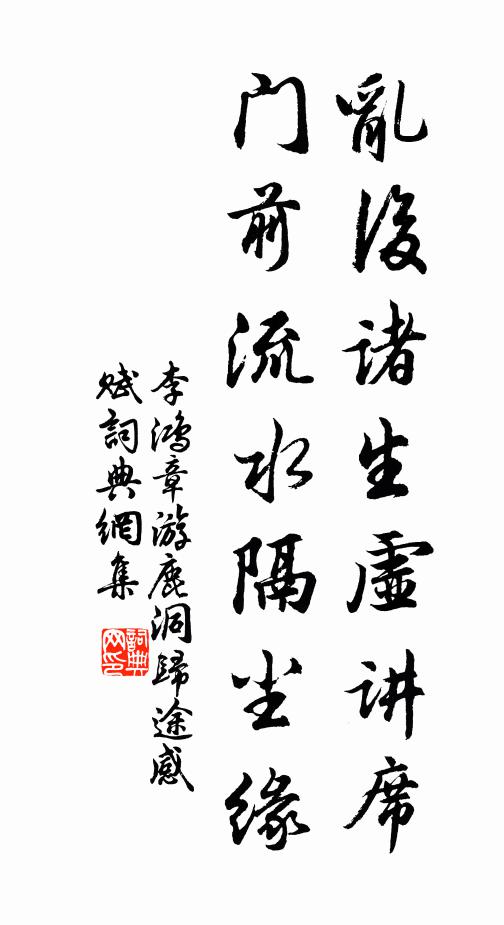 亂後诸生虛讲席
门前流水隔尘緣
李鴻章游鹿洞歸途感
賦詞典網集
詞典
网印